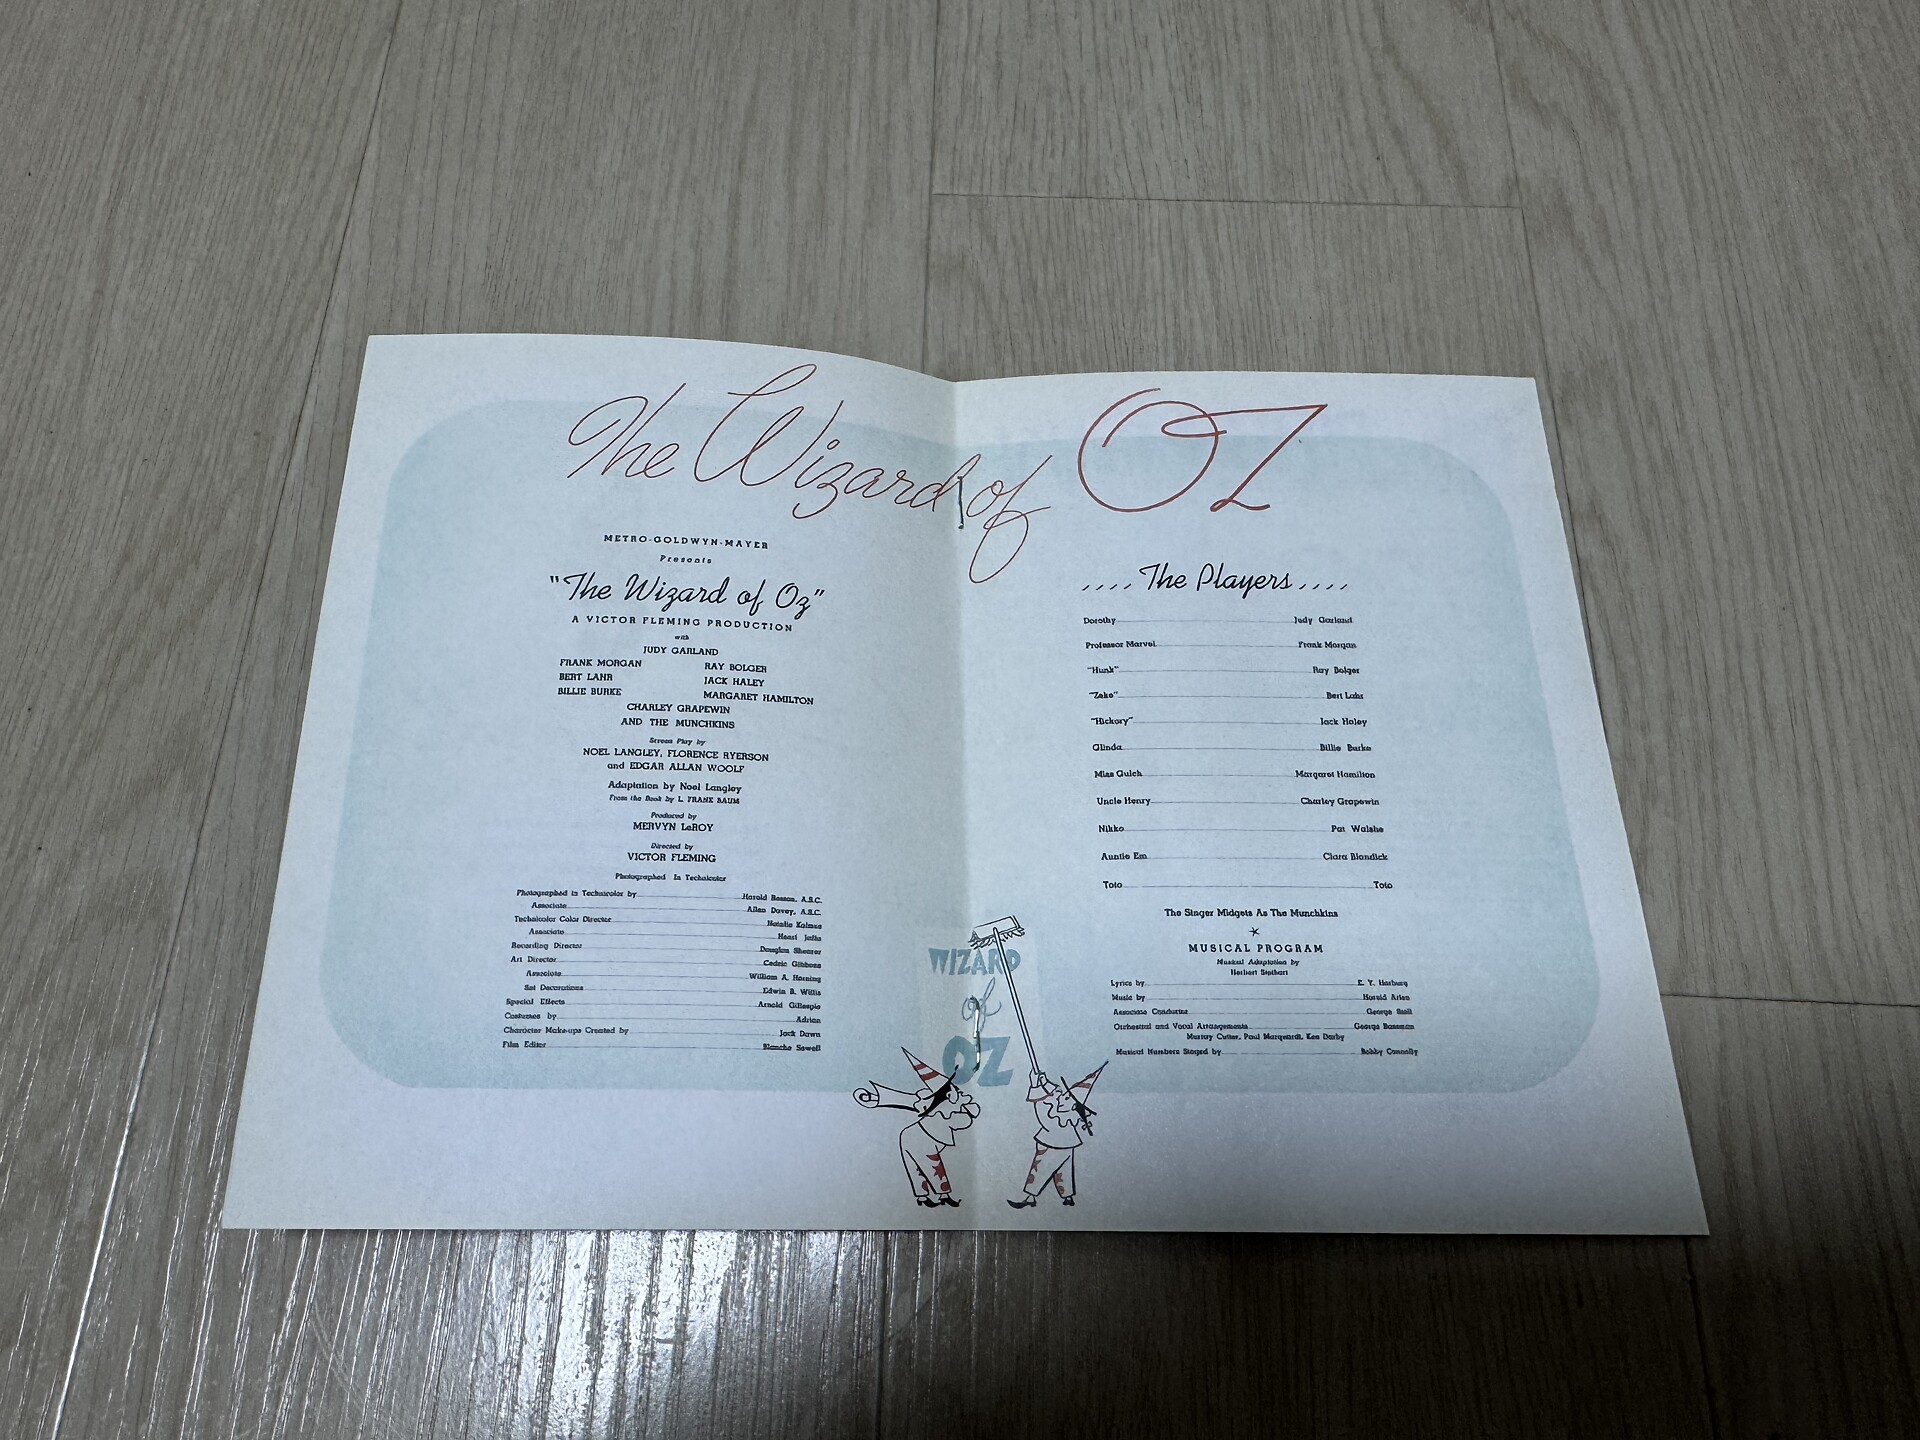 The Wizard of OZ
METRO-GOLDWYN-MAYER
Presents
"The Wizard of Oz"
A VICTOR FLEMING PRODUCTION
with
JUDY GARLAND
FRANK MORGAN RAY BOLGER
BERT LAHR JACK HALEY
BILLIE BURKE MARGARET HAMILTON
CHARLEY GRAPEWIN
AND THE MUNCHKINS
Screen Play by
NOEL LANGLEY, FLORENCE RYERSON
and EDGAR ALLAN WOOLF
Adaptation by Noel Langley
From the Book by L. FRANK BAUM
Produced by
MERVYN LeROY
Directed by
VICTOR FLEMING
Photographed In Technicolor
Photographed in Technicolor by Harold Rosson, A.S.C.
Associate Allen Davey, A.S.C.
Technicolor Color Director Natalie Kalmus
Associate Henri Jaffa
Recording Director Douglas Shearer
Art Director Cedric Gibbons
Associate William A. Horning
Set Decorations Edwin B. Willis
Special Effects Arnold Gillespie
Costumes by Adrian
Character Make-ups Created by Jack Dawn
Film Editor Blanche Sewell
.... The Players ....
Dorothy Judy Garland
Professor Marvel Frank Morgan
"Hunk" Ray Bolger
"Zeke" Bert Lahr
"Hickory" Jack Haley
Glinda Billie Burke
Miss Gulch Margaret Hamilton
Uncle Henry Charley Grapewin
Nikko Pat Walshe
Auntie Em Clara Blandick
Toto Toto
The Singer Midgets As The Munchkins
MUSICAL PROGRAM
Musical Adaptation by
Herbert Stothart
Lyrics by E. Y. Harburg
Music by Harold Arlen
Associate Conductor George Stoll
Orchestral and Vocal Arrangements George Bassman
Murray Cutter, Paul Marquardt, Ken Darby
Musical Numbers Staged by Bobby Connolly
WIZARD
of
OZ